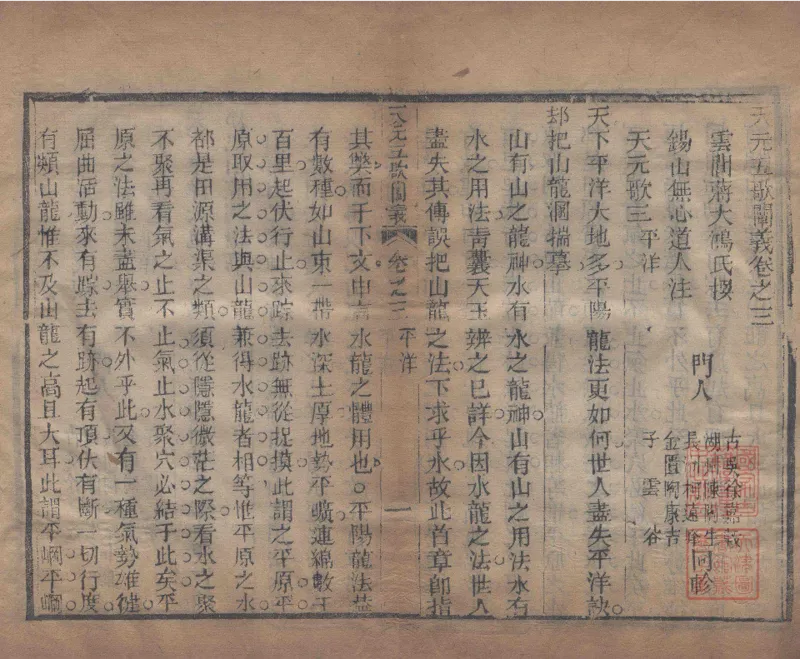 天元五歌闡義卷之三
雲間蔣大鴻氏撰
錫山無心道人注
門人
古吳徐嘉穀
湖州陳陶生
長洲柯遠峰
金匱陶康吉
子雲谷
同參
天元歌三 平洋
天下平洋大地多平陽龍法更如何世人盡失平洋訣
却把山龍洞揣摹
山有山之龍神水有水之龍神山有山之用法水有
水之用法青囊天玉辨之已詳今因水龍之法世人
盡失其傳誤把山龍之法下求乎水故此首章即指
天元五歌闡義 卷之三 平洋 一
其弊而于下文申言水龍之體用也平陽龍法蓋
有數種如山東一帶水深土厚地勢平曠連綿數千
百里起伏行止來踪去跡無從捉摸此謂之平原平
原取用之法與山龍兼得水龍者相等惟平原之水
都是田源溝渠之類須從隱隱微茫之際看水之聚
不聚再看氣之止不止氣止水聚穴必結于此矣平
原之法雖未盡舉實不外乎此又有一種氣勢雄健
屈曲活動來有踪去有跡起有頂伏有斷一切行度
有類山龍惟不及山龍之高且大耳此謂平岡平岡